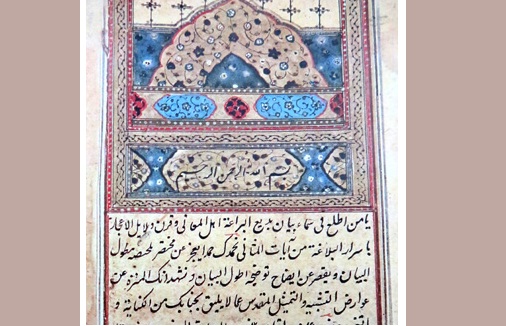 بسم الله الرحمن الرحيم
يا من اطلع في سماء بيان بديع البراعة اهل المعاني فرقوا دلايل الاعجاز
باسرار البلاغة من آيات المثاني نحمدك حمدا يعجز عن مختصر تلخيصه مطول
البيان و يقصر عن ايضاح توضيحه اطول البيان و نشهد انك المنزه عن
عوارض التشبيه و التمثيل المقدس عما لا يليق بجنابك من الكناية و